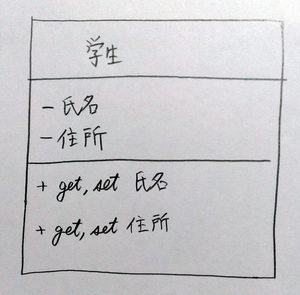 学生
- 氏名
- 住所
+ get, set 氏名
+ get, set 住所